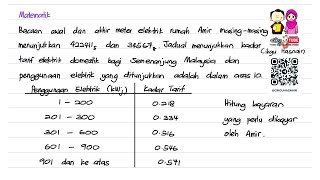 Matematik
Bacaan awal dan akhir meter elektrik rumah Amir masing-masing
menunjukkan dan Jadual menunjukkan kadar
(Cikgu Hasnain)
tarif elektrik domestik bagi Semenanjung Malaysia dan
penggunaan elektrik yang ditunjukkan adalah dalam asas 10.
Penggunaan Elektrik (kWj) Kadar Tarif
1 - 200 0.218
201 - 300 0.334
301 - 600 0.516
601 - 900 0.546
901 dan ke atas 0.571
Hitung bayaran
yang perlu dibayar
oleh Amir.